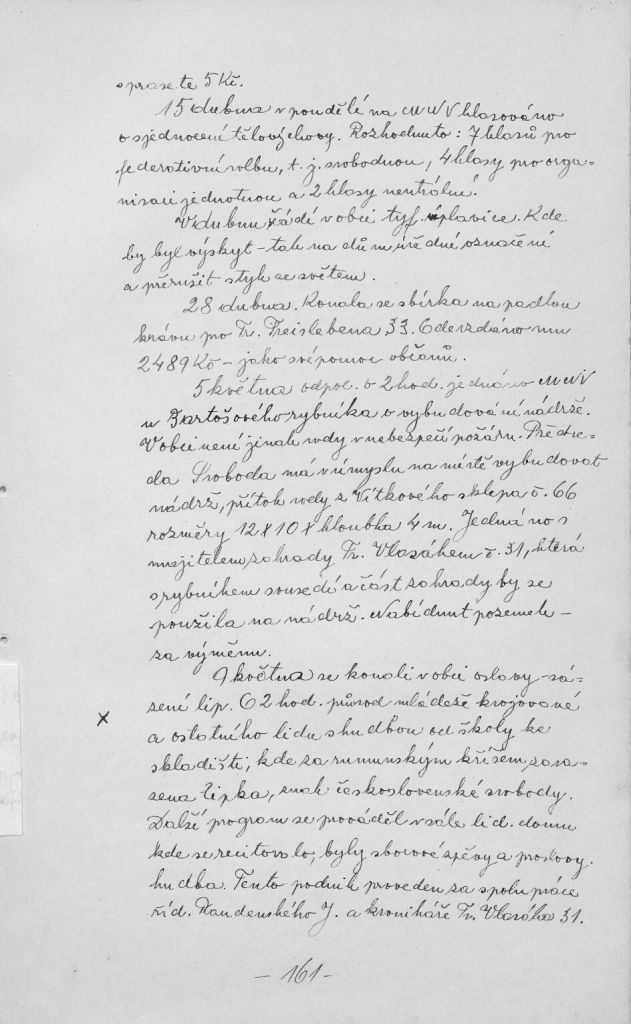 s prasete 5 Kč.
15 dubna v pondělí na MNV hlasováno
o sjednocení tělovýchovy. Rozhodnuto: 7 hlasů pro
federativní volbu, t. j. svobodnou, 4 hlasy pro orga-
nisaci jednotnou a 2 hlasy neutrální.
V dubnu řádí v obci tyf. úplavice. Kde
by byl výskyt - tak na dům úřědné označení
a přěrušit styk ze světem.
28 dubna. Konala se sbírka na padlou
krávu pro Fr. Freislebena 33. Odevzdáno mu
2489 Kč - jako svépomoc občanů.
5 května odpol. o 2 hod. jednáno MNV
u Bartošového rybníka o vybudování nádrže.
V obci není jinak vody v nebezpečí požáru. Předse-
da Svoboda má v úmyslu na místě vybudovat
nádrž, přítok vody z Vítkového sklepa č. 66
rozměry 12 X 10 X hloubka 4 m. Jednáno s
majitelem zahrady Fr. Vlasákem č. 31, která
s rybníkem sousedí a část zahrady by se
použila na nádrž. Nabídnut pozemek -
za výměnu.
9 května se konali v obci oslavy - sá-
zení lip. O 2 hod. průvod mládeže krojované
X a ostatního lidu s hudbou od školy ke
skladišti, kde za rumunským křížem zasa-
zena lipka, znak československé svobody.
Další program se prováděl v sále lid. domu
kde se recitovalo, byly sborové zpěvy a proslovy.
hudba. Tento podnik proveden za spolu práce
říd. Raudenského J. a kronikáře Fr. Vlasáka 31.
- 161 -